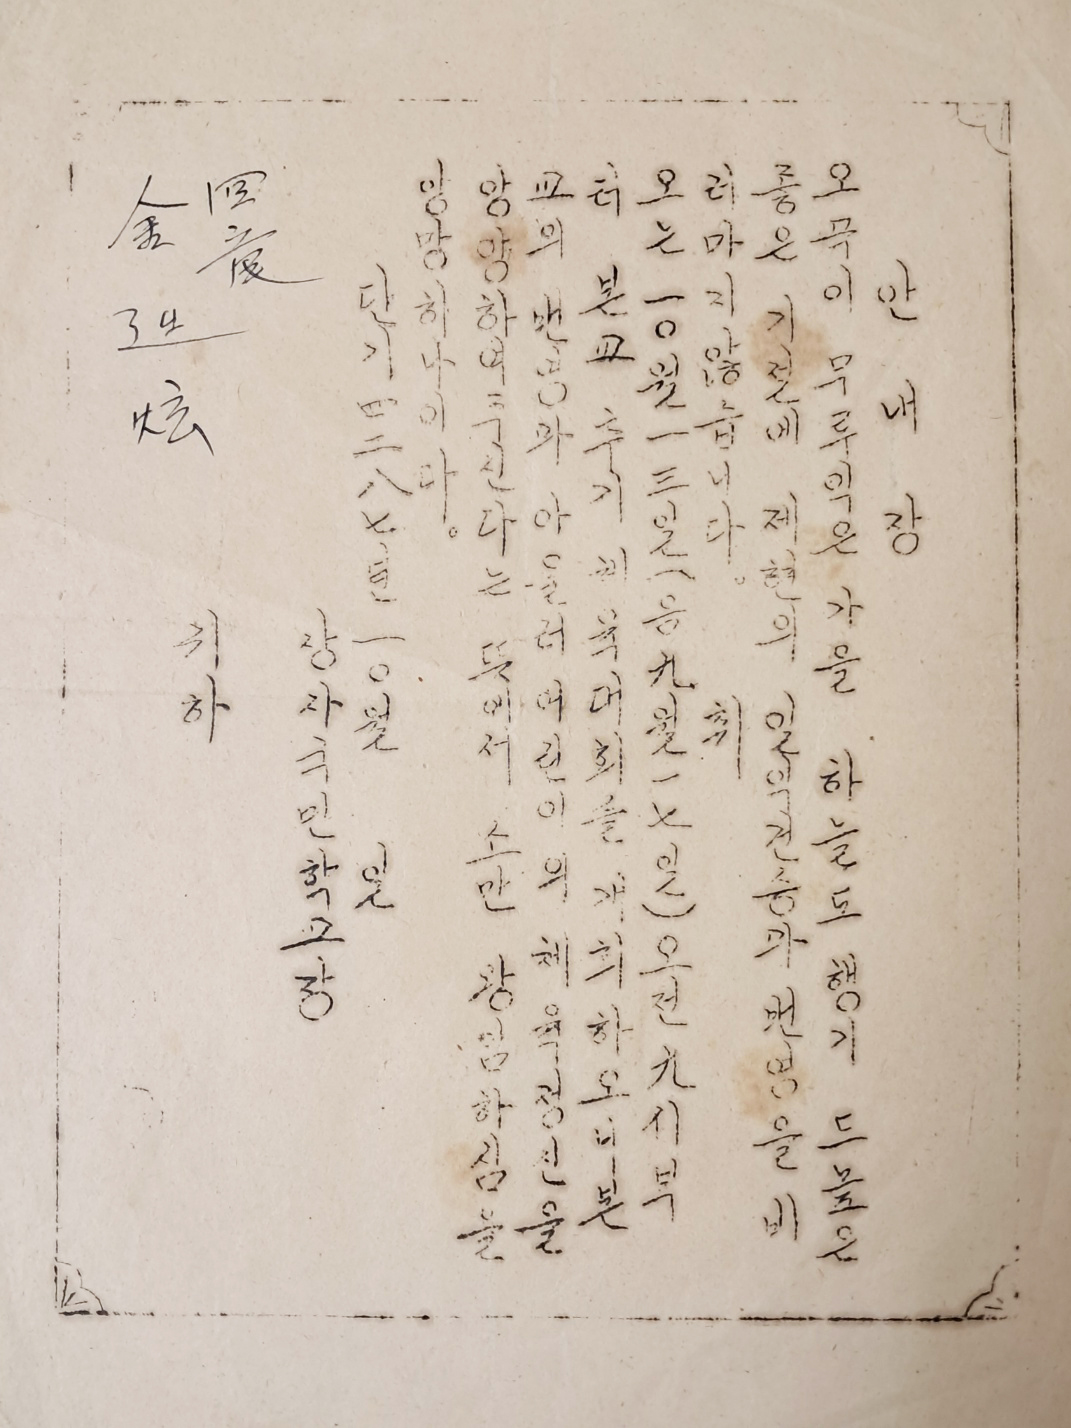 안내장
오곡이 무루익은 가을 하늘도 행기 드높은
중은 기절에 제현의 일익건승과 번영을 비
리마지않습니다.
희
오는 一〇월 一三일(음九월一七일)오전 九시부
터 본교 추기 체육대회를 개최하오니 본
교의 번영과 아울러 어린이의 체육정신을
앙양하며 구친다는 뜻에서 소만 왕림하심을
앙망하나이다.
단기 四二八七年 一〇월 일
장자국민학교장
金廷炫 귀하